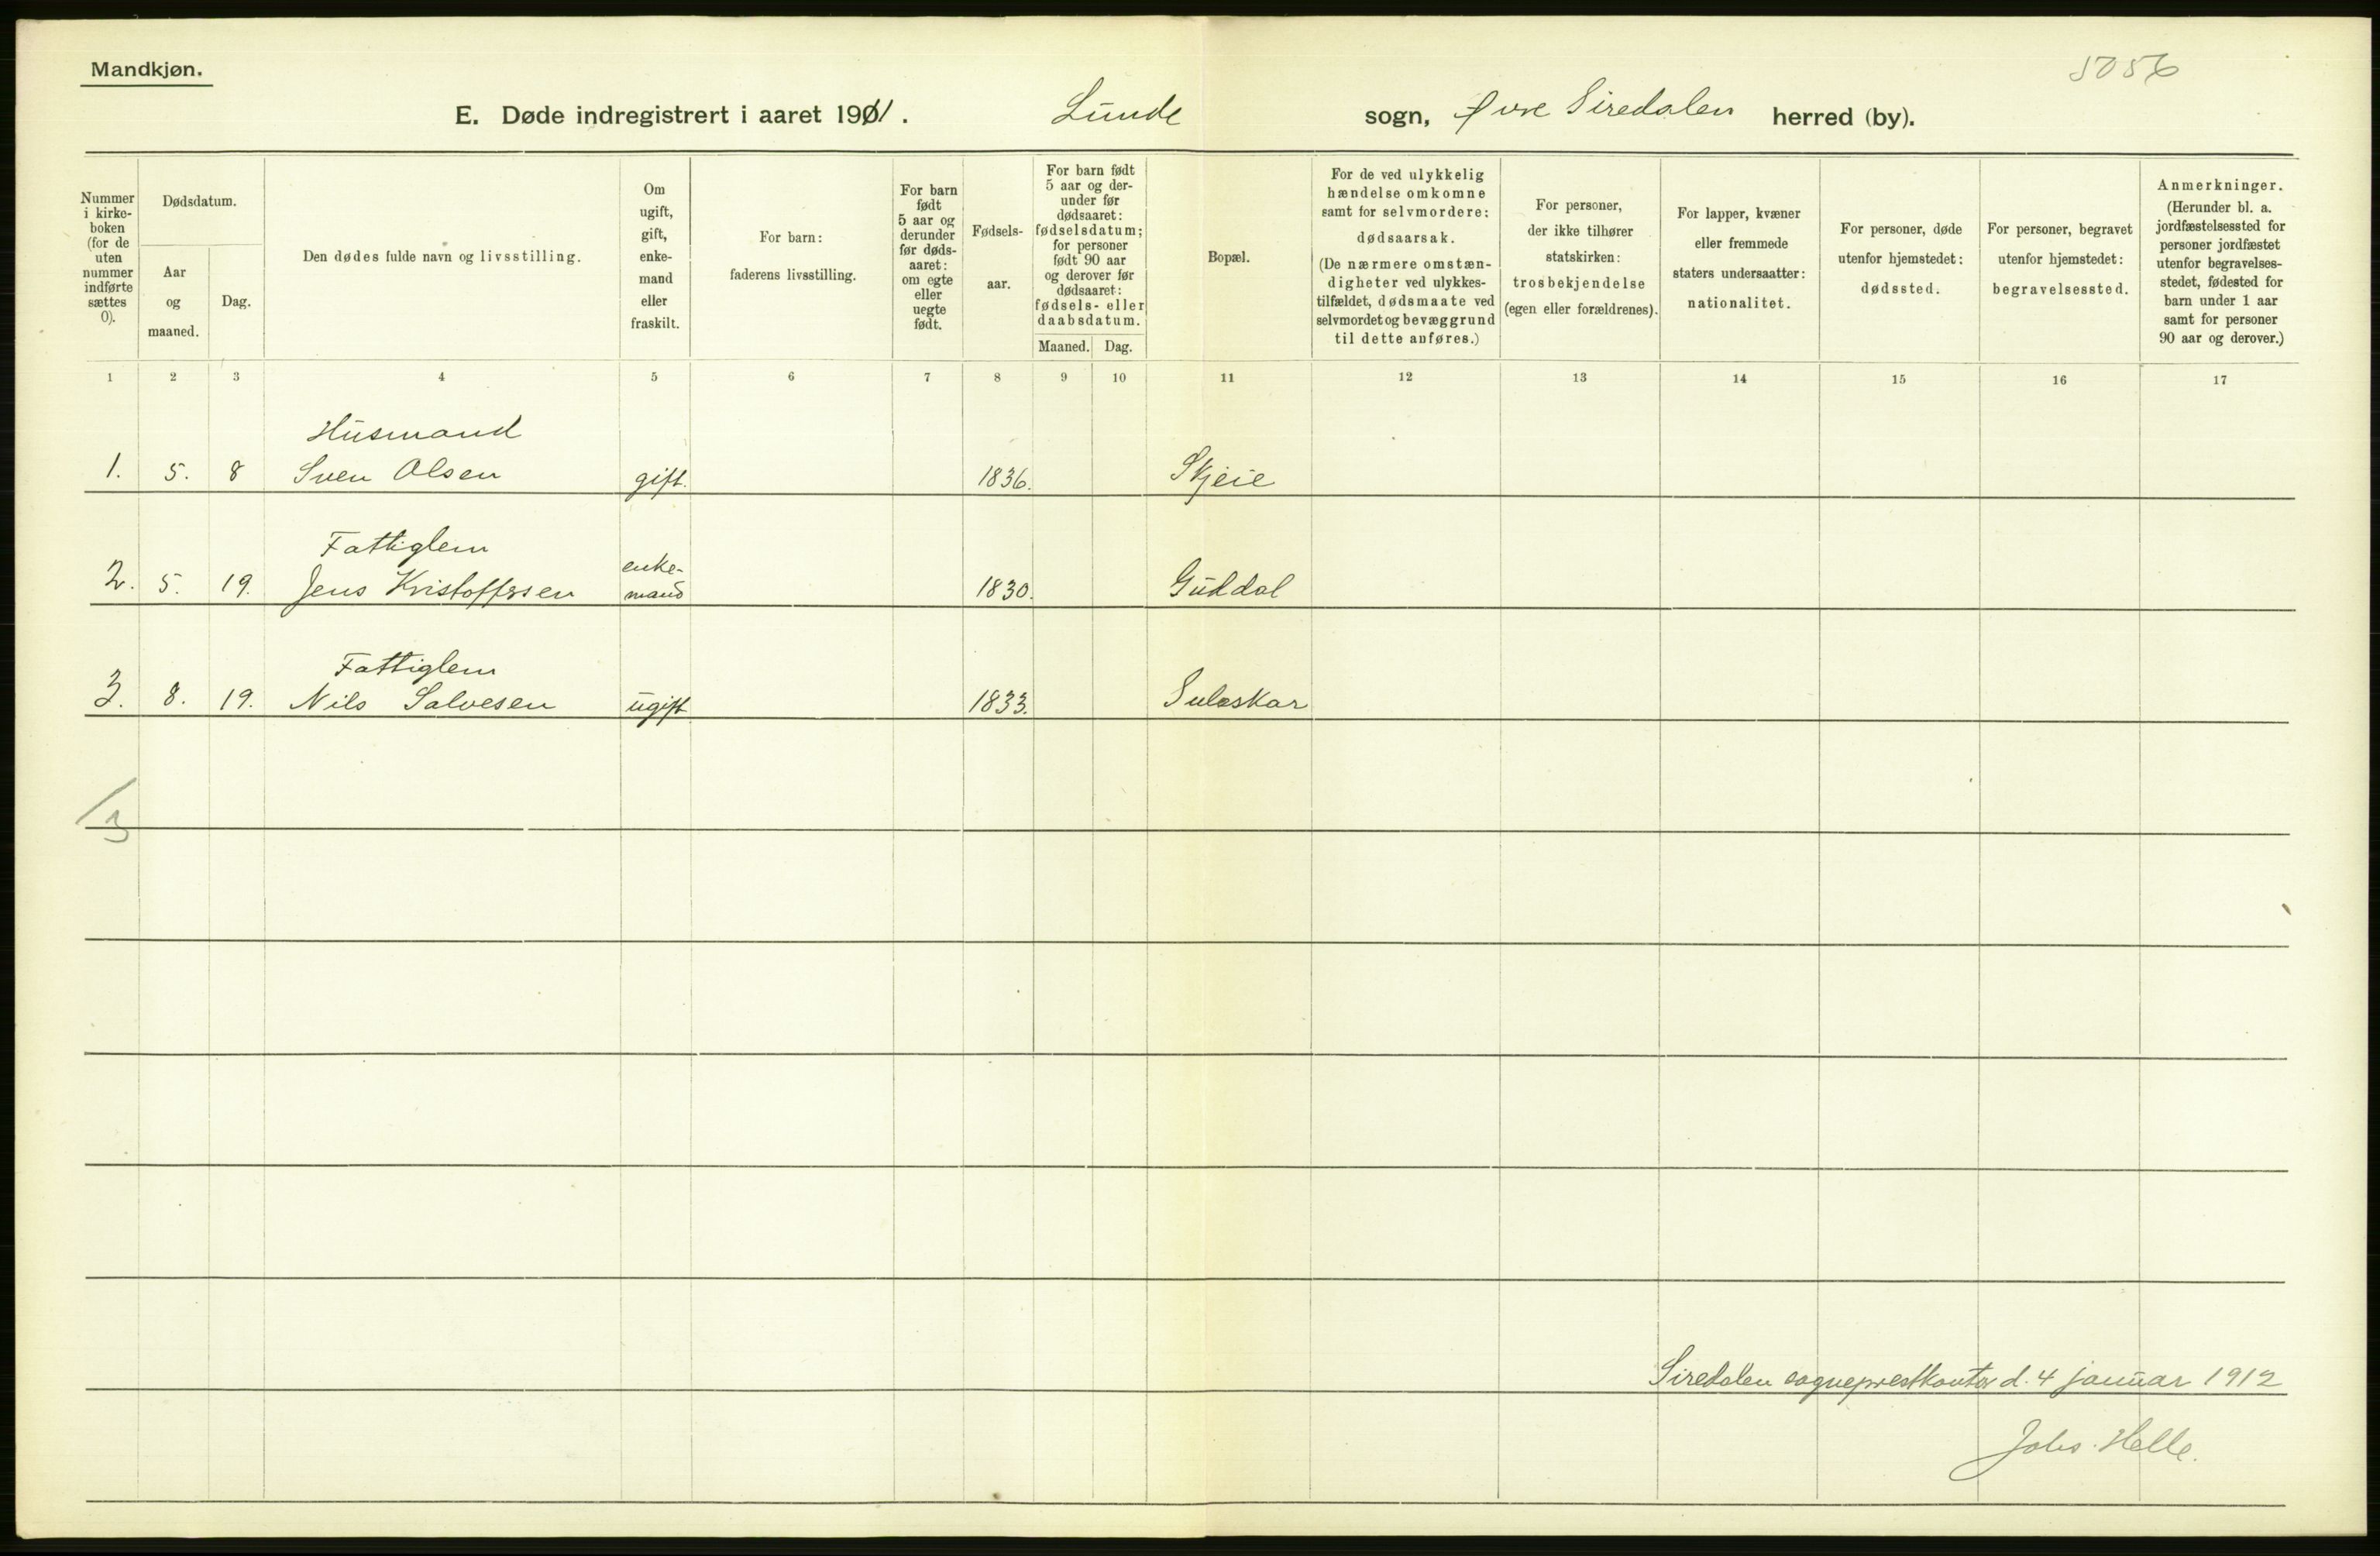 Mandkjøn.
5056
E. Døde indregistrert i aaret 1911. Lunde sogn, Øvre Siredalen herred (by).
Nummer i kirke-boken (for de uten nummer indførte sættes 0).
Dødsdatum.
Aar og maaned.
Dag.
Den dødes fulde navn og livsstilling.
Om ugift, gift, enke-mand eller fraskilt.
For barn: faderens livsstilling.
For barn født 5 aar og derunder før døds-aaret: om egte eller uegte født.
Fødsels-aar.
For barn født 5 aar og der-under før dødsaaret: fødselsdatum; for personer født 90 aar og derover før dødsaaret: fødsels- eller daabsdatum.
Maaned. Dag.
Bopæl.
For de ved ulykkelig hændelse omkomne samt for selvmordere: dødsaarsak. (De nærmere omstæn-digheter ved ulykkes-tilfældet, dødsmaate ved selvmordet og bevæggrund til dette anføres.)
For personer, der ikke tilhører statskirken: trosbekjendelse (egen eller forældrenes).
For lapper, kvæner eller fremmede staters undersaatter: nationalitet.
For personer, døde utenfor hjemstedet: dødssted.
For personer, begravet utenfor hjemstedet: begravelsessted.
Anmerkninger. (Herunder bl. a. jordfæstelsessted for personer jordfæstet utenfor begravelses-stedet, fødested for barn under 1 aar samt for personer 90 aar og derover.)
1 2 3 4 5 6 7 8 9 10 11 12 13 14 15 16 17
Husmand
1. 5. 8 Sven Olsen gift. 1836. Skjeie
Fattiglem
2. 5. 19. Jens Kristoffersen enke-mand 1830. Guddal
Fattiglem
3. 8. 19. Nils Salvesen ugift 1833. Suleskar
/3
Siredalen sogneprestkontor d. 4 januar 1912
Johs. Helle.